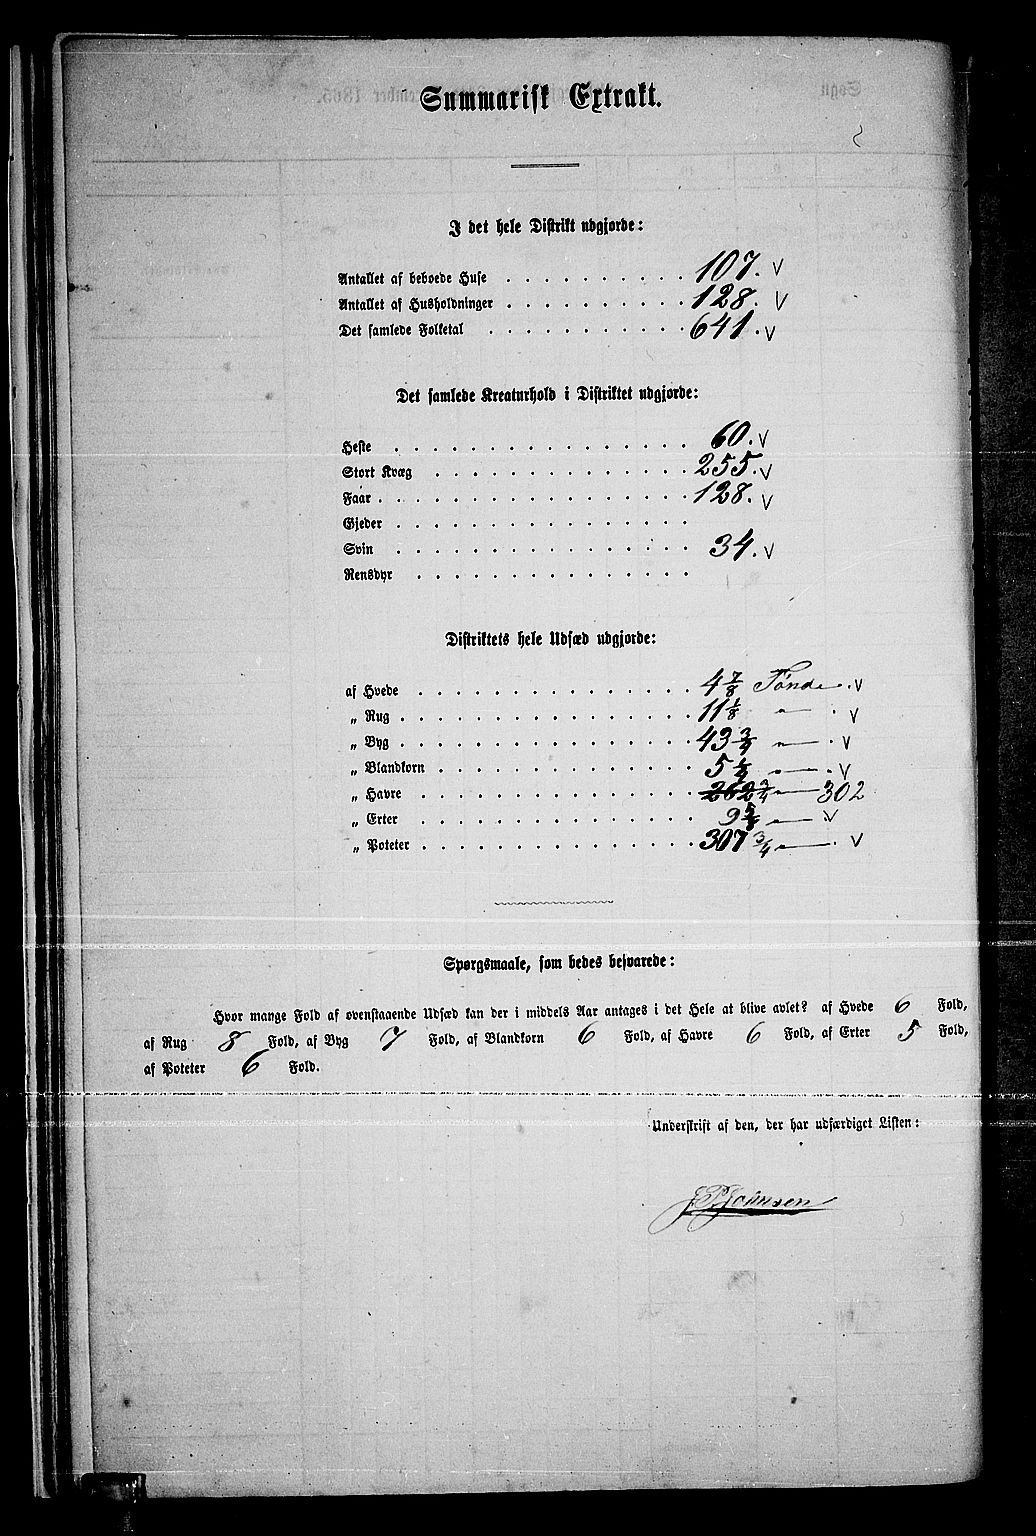 Summarisk Extrakt.
I det hele Distrikt udgjorde:
Antallet af beboede Huse . . . . . . . . . . 107. v
Antallet af Husholdninger . . . . . . . . . . 128. v
Det samlede Folketal . . . . . . . . . . . 641. v
Det samlede Kreaturhold i Distriktet udgjorde:
Heste . . . . . . . . . . . . . . . 60. v
Stort Kvæg . . . . . . . . . . . . . 255. v
Faar . . . . . . . . . . . . . . . . 128. v
Gjeder . . . . . . . . . . . . . . .
Svin . . . . . . . . . . . . . . . 34. v
Rensdyr . . . . . . . . . . . . . .
Distriktets hele Udsæd udgjorde:
af Hvede . . . . . . . . . . . . . . 4 7/8 Tønde. v
„ Rug . . . . . . . . . . . . . . . 11 1/8 — " — . v
„ Byg . . . . . . . . . . . . . . . 43 3/4 — " — . v
„ Blandkorn . . . . . . . . . . . . . 5 1/4 — " — . v
„ Havre . . . . . . . . . . . . . . 262 3/4 — " — 302
„ Erter . . . . . . . . . . . . . . 9 5/8 — " — v
„ Poteter . . . . . . . . . . . . . 307 3/4 — " — . v
Spørgsmaale, som bedes besvarede:
Hvor mange Fold af ovenstaaende Udsæd kan der i middels Aar antages i det Hele at blive avlet? af Hvede 6 Fold,
af Rug 8 Fold, af Byg 7 Fold, af Blandkorn 6 Fold, af Havre 6 Fold, af Erter 5 Fold,
af Poteter 6 Fold.
Underskrift af den, der har udfærdiget Listen: